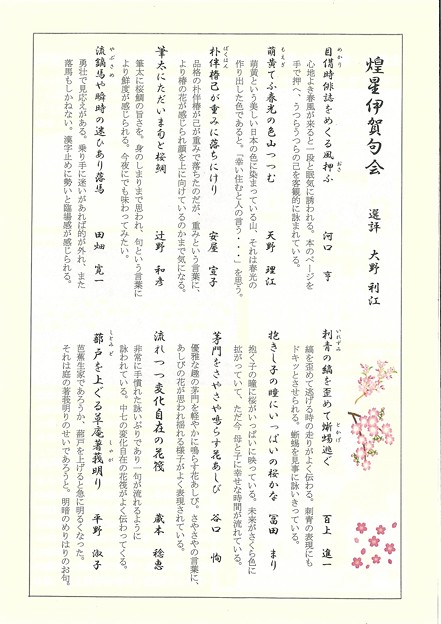 煌星伊賀句会　選評　大野 利江
目借時俳誌をめくる風押ふ　河口 亨
めかり
おさ
心地よき春風が来ると一段と眠気に誘われる。本のページを
手で押へ、うつらうつらの己を客観的に詠まれている。
萌黄てふ春光の色山つつむ　天野 理江
もえぎ
萌黄という美しい日本の色に染まっている山、それは春光の
作り出した色であると。「幸い住むと人の言う・・・」を思う。
朴伴椿己が重みに落ちにけり　安屋 宣子
ぼくはん
品格の朴伴椿が己が重みで落ちたのだが、重みという言葉に、
より椿の花が感じられ顔を上に向けているのかまで気になる。
筆太にただいま旬と桜鯛　辻野 和彦
筆太に桜鯛の旨さを。身のしまりまで思われ、旬という言葉に
より鮮度が感じられる。今夜にでも味わってみたい。
流鏑馬や瞬時の迷ひあり落馬　田畑 寛一
やぶさめ
勇壮で見応えがある。乗り手に迷いがあれば的が外れ、また
落馬もしかねない。漢字止めに勢いと臨場感が感じられる。
刺青の縞を歪めて蜥蜴逃ぐ　百上 進一
いれずみ
とかげ
縞を歪めて逃げる時の走りがよく伝わる。刺青の表現にも
ドキッとさせられる。蜥蜴を見事に詠いきっている。
抱きし子の瞳にいっぱいの桜かな　冨田 まり
抱く子の瞳に桜がいっぱいに映っている。未来がさくら色に
拡がっていて、ただ今 母と子に幸せな時間が流れている。
茅門をさやさや鳴らす花あしび　谷口 恂
優雅な趣の茅門を軽やかに鳴らす花あしび。さやさやの言葉に、
あしびの花が思われ揺れる様子がよく表現されている。
流れつつ変化自在の花筏　蔵本 稔恵
非常に手慣れた詠いぶりであり一句が流れるように
詠われている。中七の変化自在の花筏がよく伝わってくる。
蔀戸を上ぐる草庵著莪明り　平野 淑子
しとみど
やが
芭蕉生家であろうか、蔀戸を上げると急に明るくなった。
それは庭の著莪明りのせいであろうと。明暗のめりはりのお句。